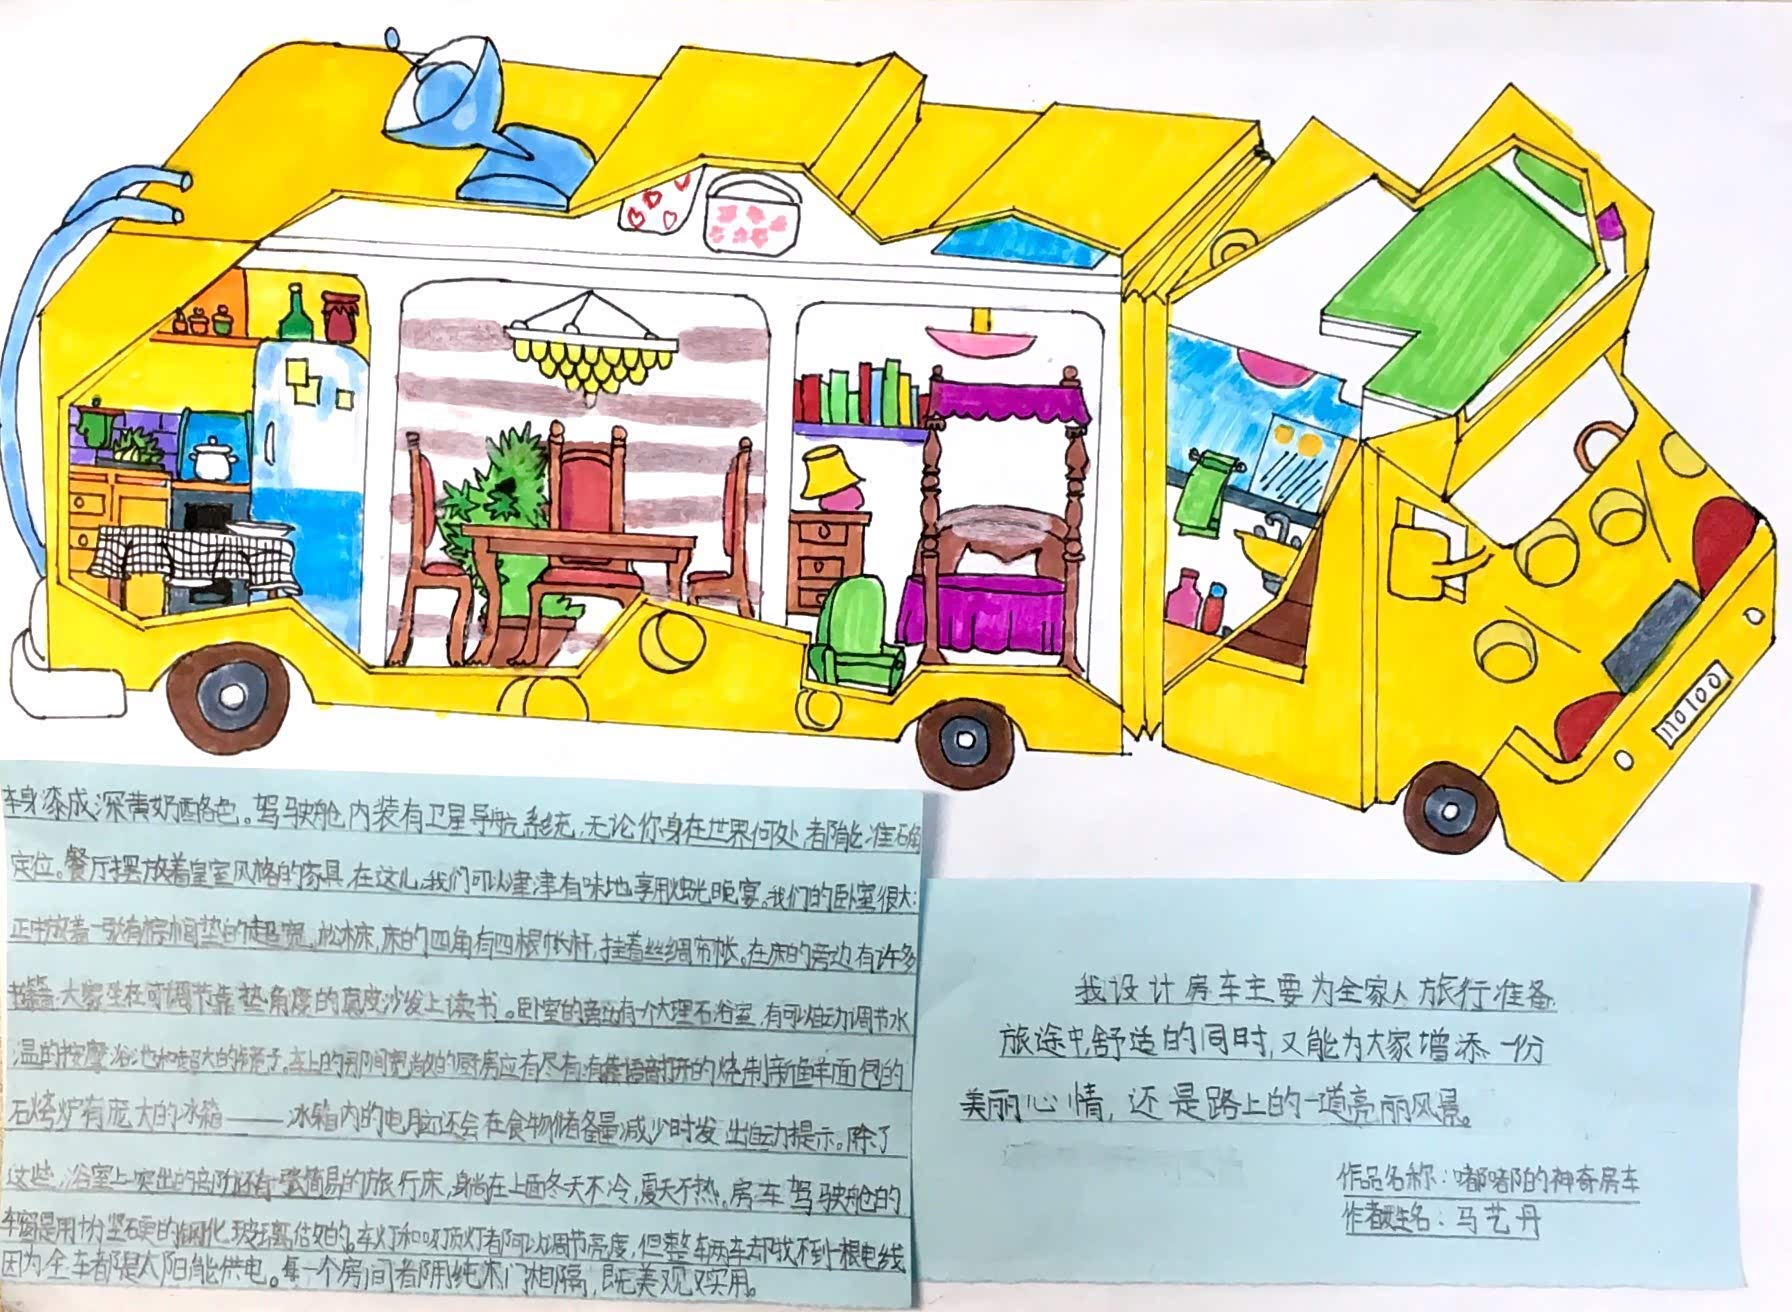 110100
车身漆成深黄奶酪色。驾驶舱内装有卫星导航系统,无论你身在世界何处,都能准确
定位。餐厅摆放着皇室风格的家具,在这儿,我们可以津津有味地享用烛光晚宴。我们的卧室很大:
正中放着一张有棕榈垫的超宽松木床,床的四角有四根帐杆,挂着丝绸帘帐。在床的旁边有许多
书籍,大家坐在可调节靠垫角度的真皮沙发上读书。卧室的旁边有一个大理石浴室,有可自动调节水
温的按摩浴池和超大的镜子。车上的房间宽敞的厨房应有尽有:有靠语音打开的烧制新鲜面包的
石烤炉有庞大的冰箱——冰箱内的电脑还会在食物储备量减少时发出自动提示。除了
这些,浴室上突出的部分还有一张简易的旅行床,身尚在上面冬天不冷,夏天不热。房车驾驶舱的
车窗是用十分坚硬的钢化玻璃做的。车灯和吸顶灯都可以调节亮度,但整车两车却找不到一根电线
因为全车都是太阳能供电。每一个房间都用纯木门相隔,既美观又实用。
我设计房车主要为全家人旅行准备
旅途中,舒适的同时,又能为大家增添一份
美丽心情,还是路上的一道亮丽风景。
作品名称:嘟嘟的神奇房车
作者姓名:马艺丹